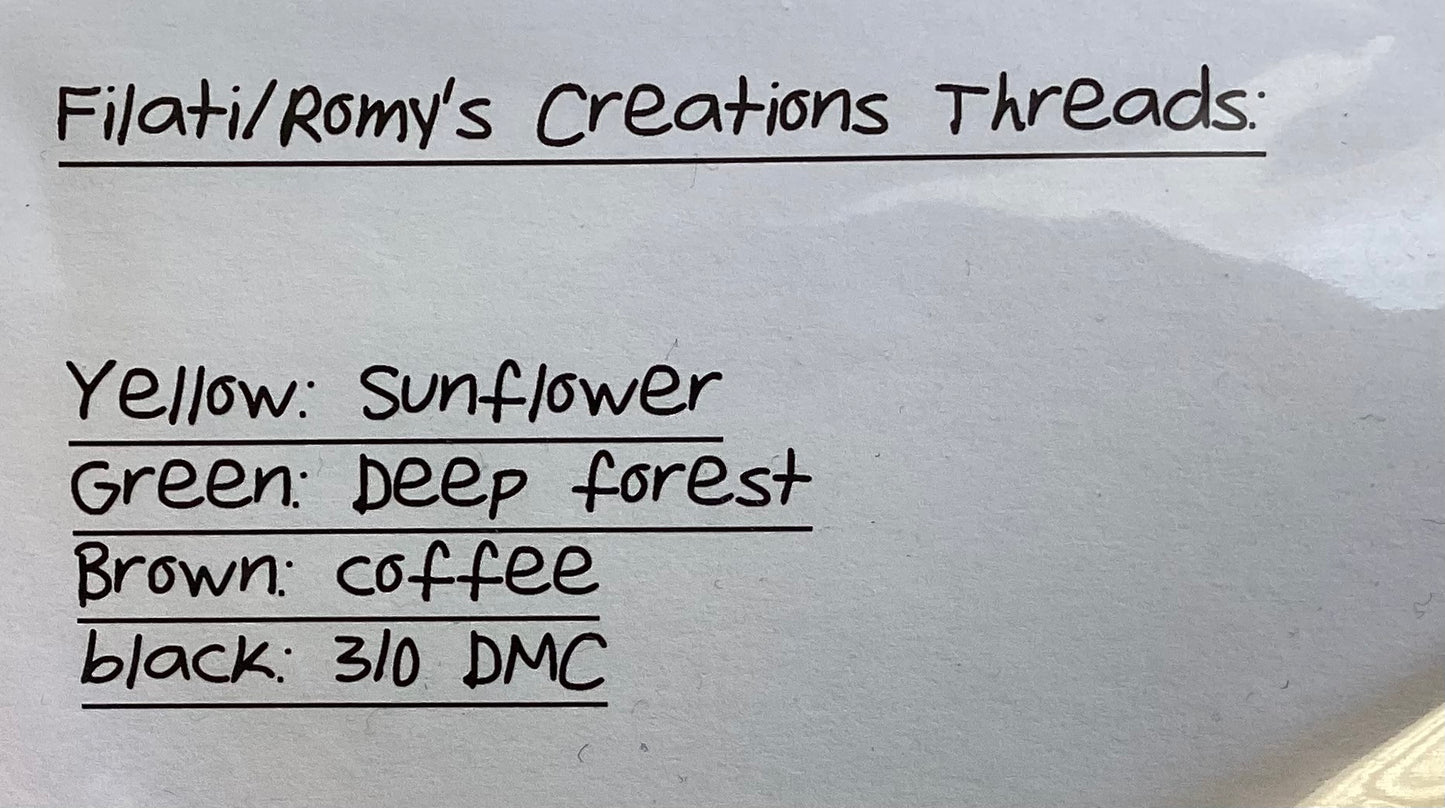 Filati/Romy's Creations Threads:
Yellow: Sunflower
Green: Deep forest
Brown: coffee
black: 310 DMC